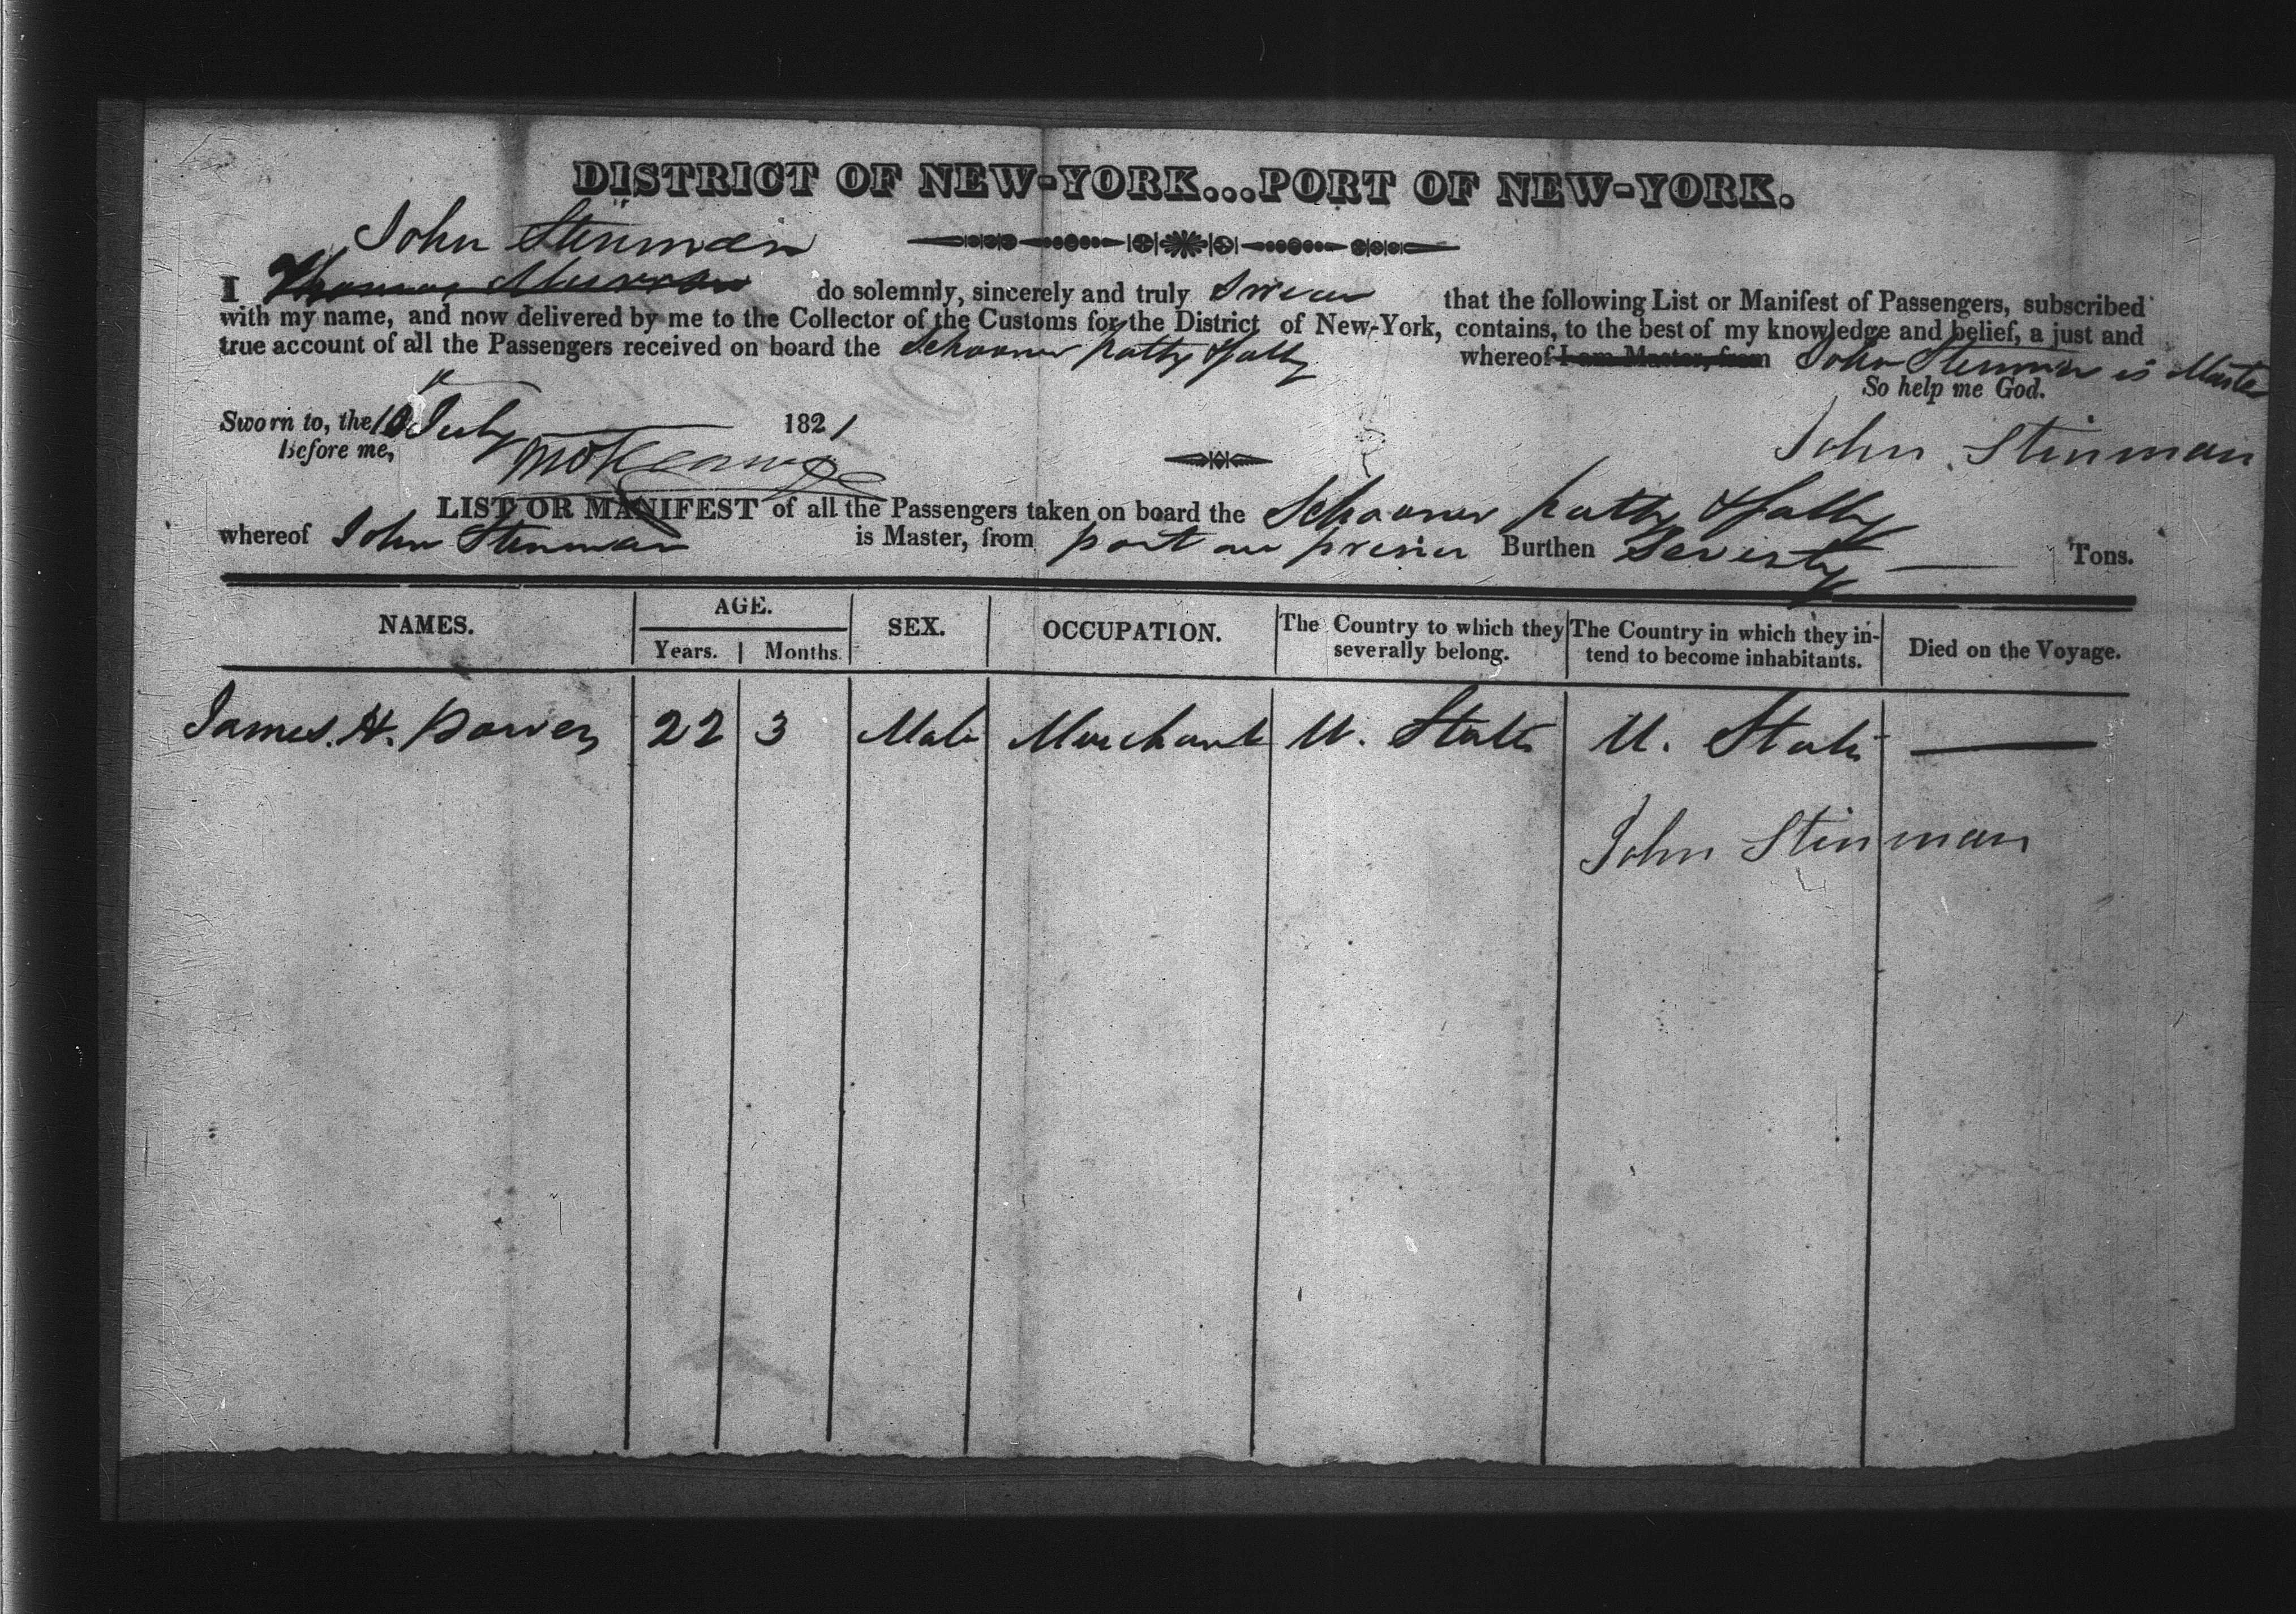 DISTRICT OF NEW-YORK...PORT OF NEW-YORK.
John Stinman
I Thomas do solemnly, sincerely and truly Swear that the following List or Manifest of Passengers, subscribed
with my name, and now delivered by me to the Collector of the Customs for the District of New-York, contains, to the best of my knowledge and belief, a just and
true account of all the Passengers received on board the Schooner patty & Sally whereof I am Master, from John Stinman is Master
So help me God.
Sworn to, the 10 July 1821
Before me,
John Stinman
LIST OR MANIFEST of all the Passengers taken on board the Schooner patty & Sally
whereof John Stinman is Master, from port au Burthen Seventy Tons.
NAMES. AGE. SEX. OCCUPATION. The Country to which they severally belong. The Country in which they intend to become inhabitants. Died on the Voyage.
Years. Months.
James. H. 22 3 Male Merchant U. States U. States
John Stinman